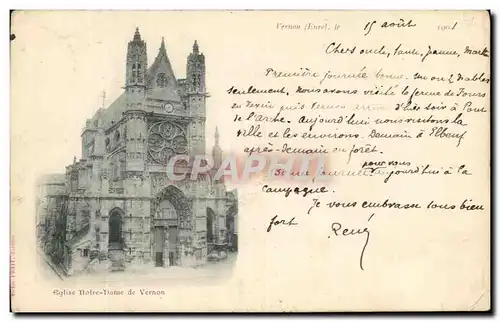 Vernon (Eure), le 15 août 1901
Chers oncle, tante, Jeanne, Marthe
Première journée bonne.
seulement. Nous avons visité la ferme de Tours
en Vexin puis Vernon arrivé d'hier soir à Pont
de l'arche. Aujourd'hui nous visitons la
ville et les environs. Demain à Elbeuf
après-demain en forêt.
Bonne journée pour vous aujourd'hui à la
campagne.
Je vous embrasse tous bien
fort
René
CARTE
Eglise Notre-Dame de Vernon